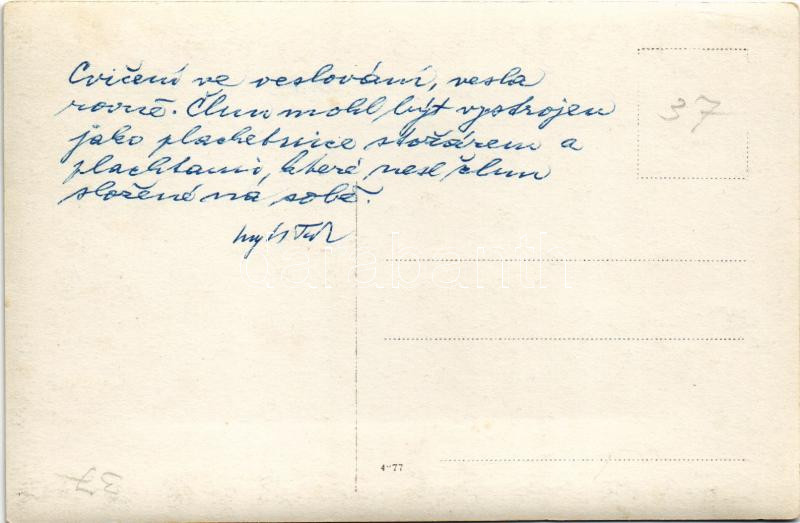 Cvičení ve veslování, vesla
rovně. Člun mohl být vystrojen
jako plachetnice stožárem a
plachtami, které nesl člun
složené na sobě.
37
4-77
37
Darabanth